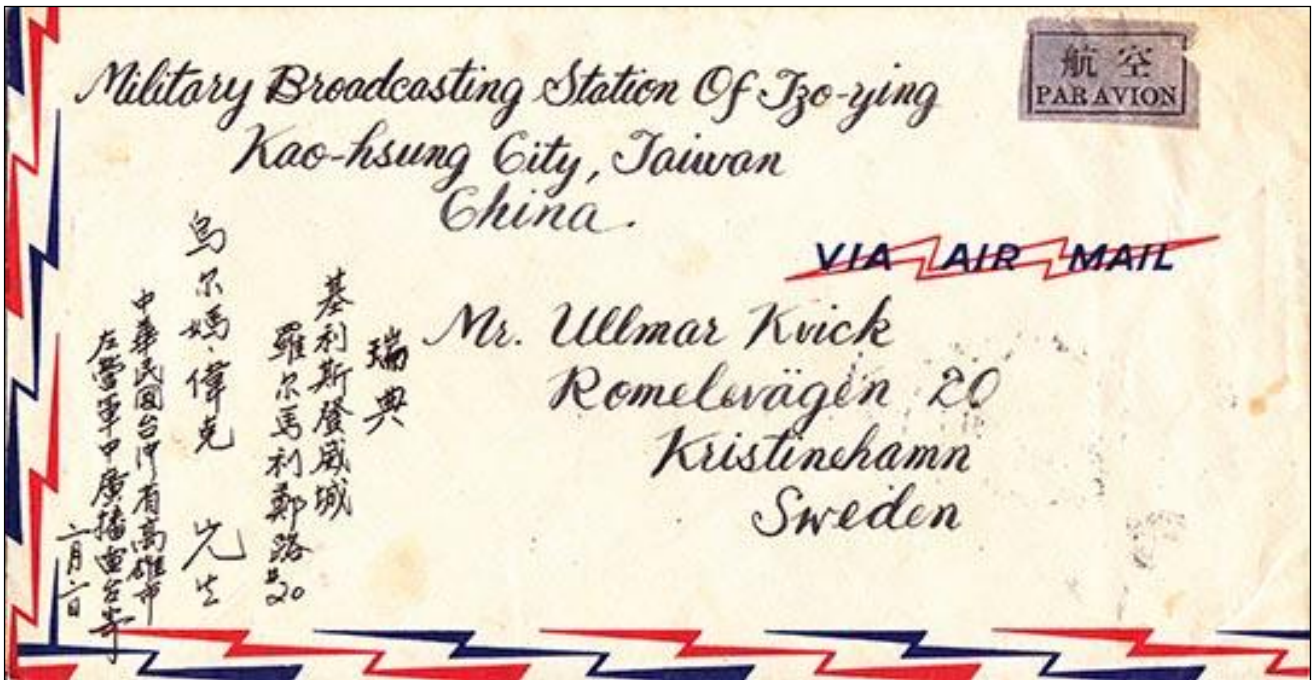 Military Broadcasting Station Of Tzo-ying
Kao-hsung City, Taiwan
China.
航空
PAR AVION
VIA AIR MAIL
Mr. Ullmar Kvick
Romelevägen 20
Kristinehamn
Sweden
瑞典
基利斯登威城
羅尔馬利鄭路#20
烏尔媽·偉克 先生
中華民國台灣省高雄市
左營軍中廣播電台寄